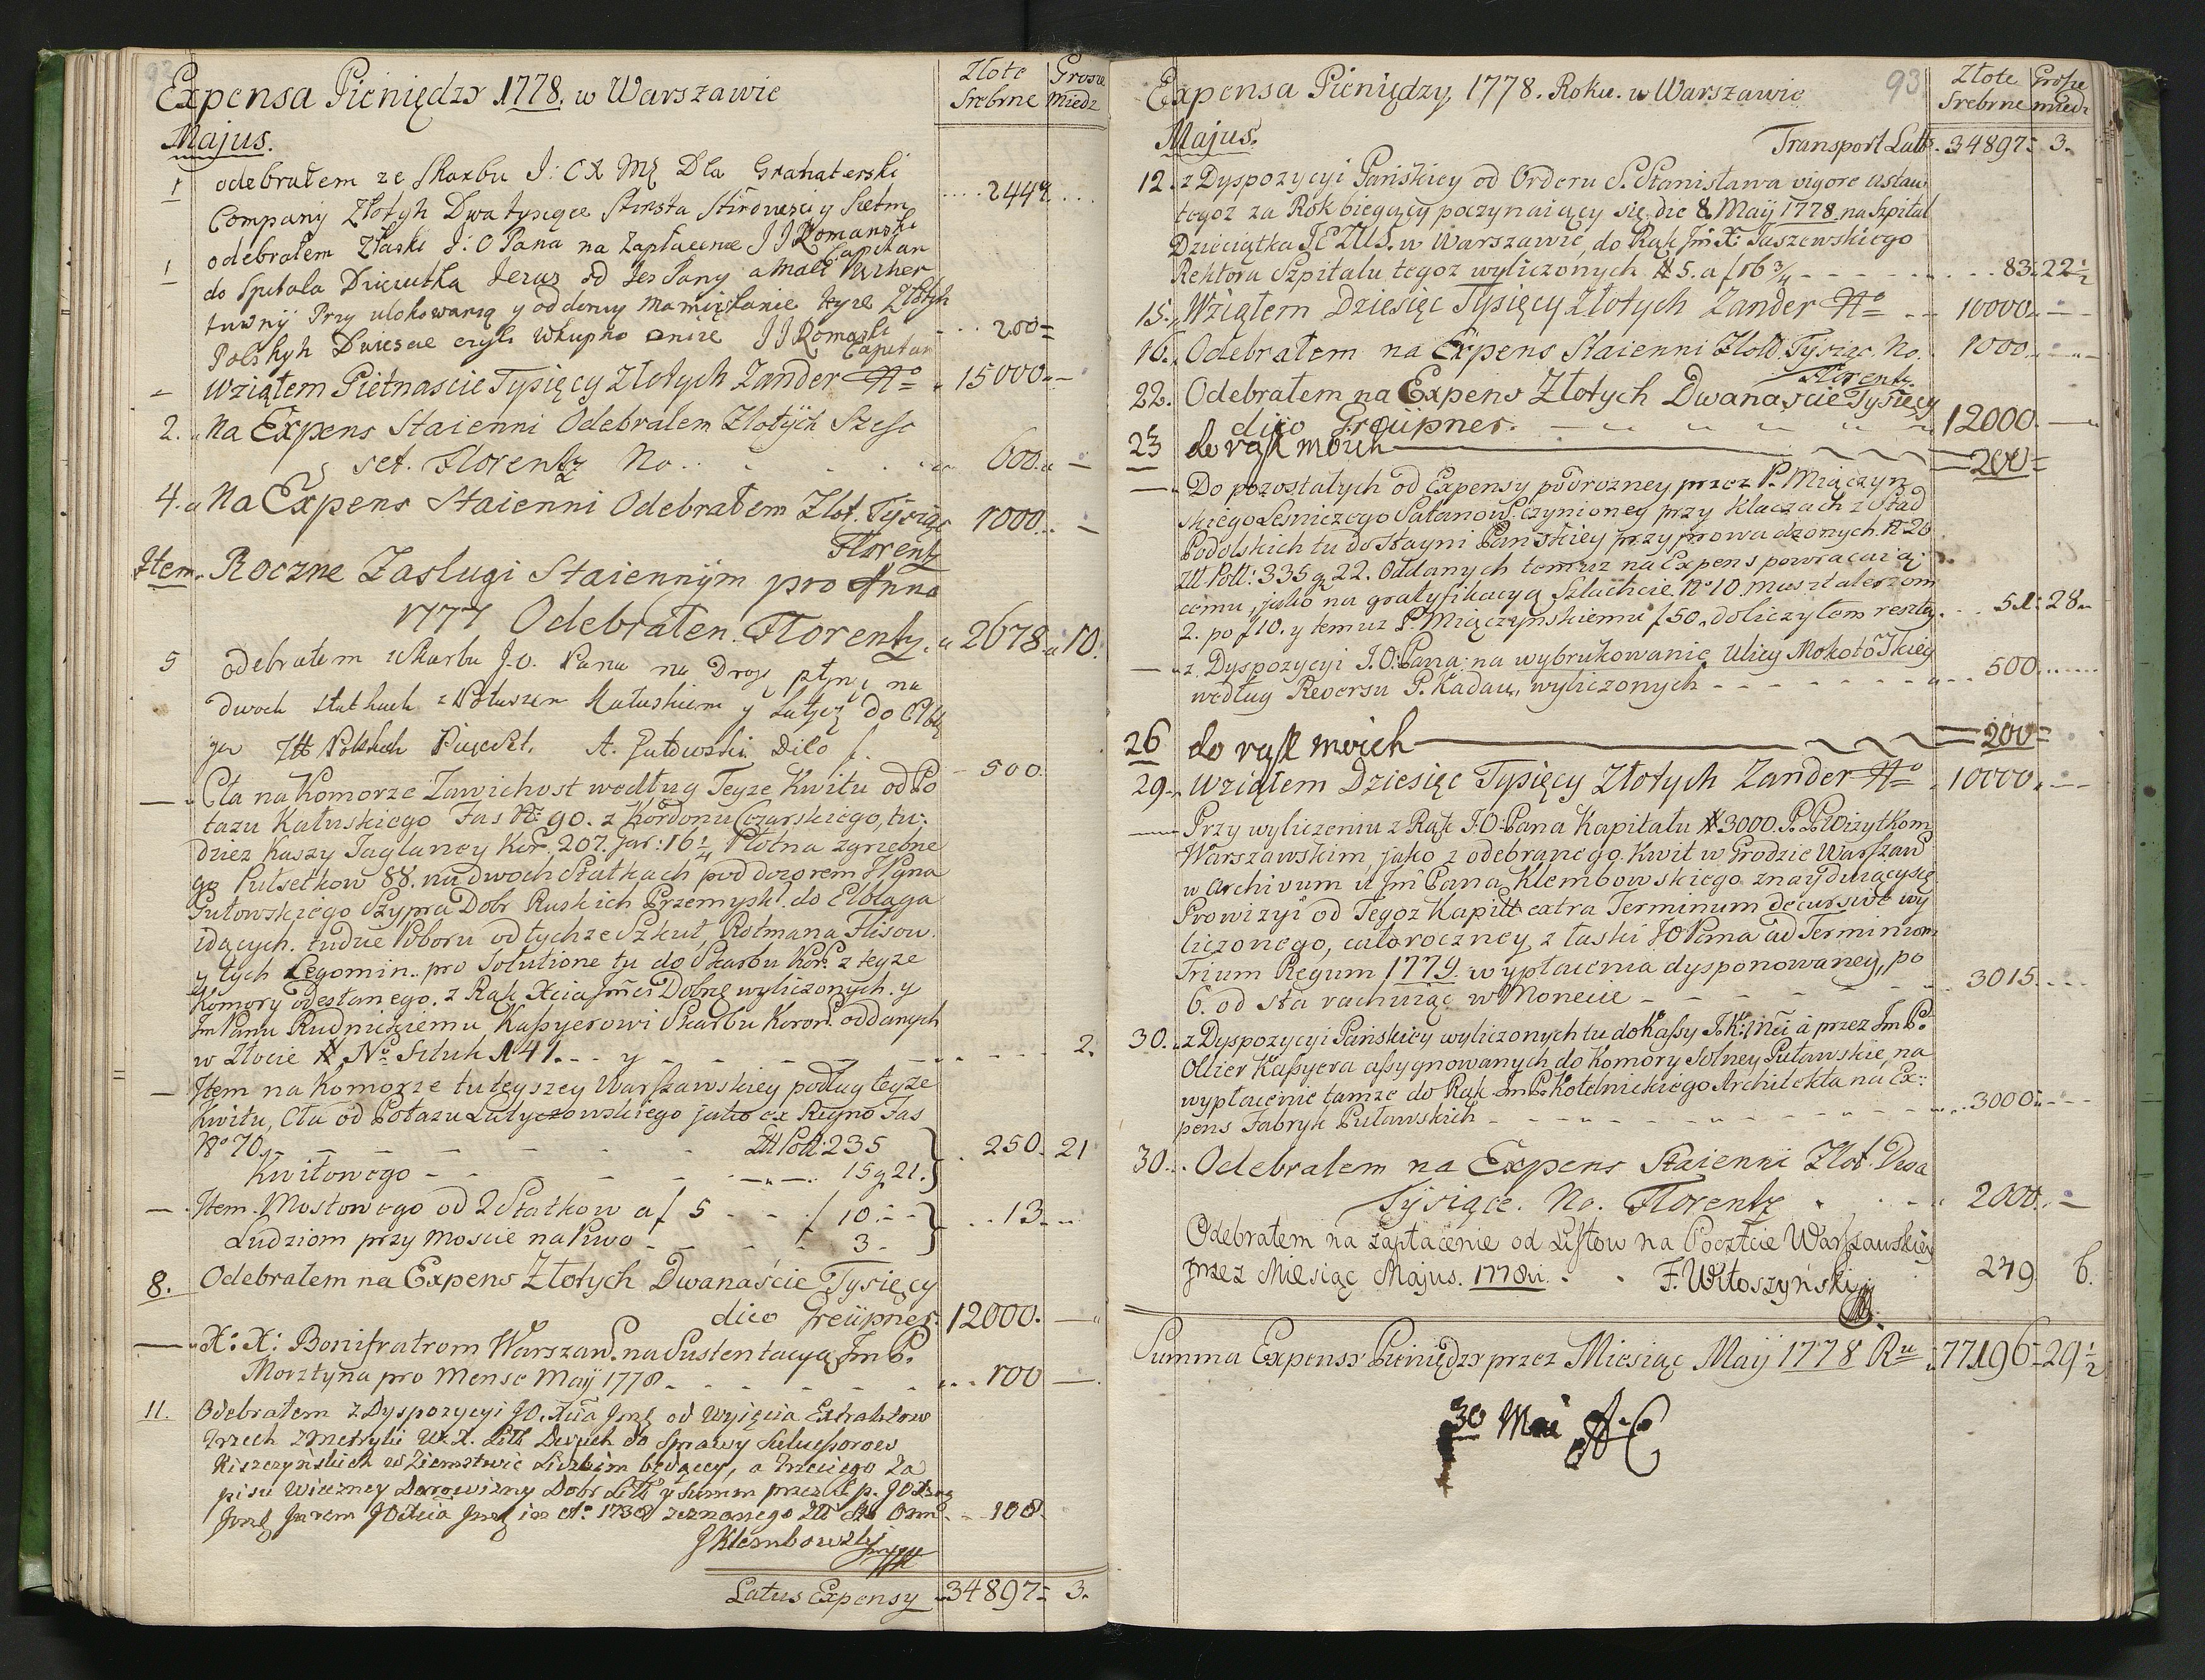 Expensa Pieniędzy 1778. w Warszawie
Złote Srebrne
Grosze Miedz
Majus.
1 odebrałem ze Skarbu J: O X Mę Dla Granaterski
Companij Złotyh Dwa tysięce Sterysta 2442
1 odebrałem Złaski J: O Pana na Zapłacenie J J Romanski Capitan
do Spitala Dzieciutka Jezus od
Przy ulokowanią y oddeniu
Polskyh Dwiescie J J Romaski Capitan 200=
Wziąłem Piętnascie Tysięcy Złotych Zander No 15000.
2. Na Expens Staienni Odebrałem Złotÿch Szesc
set. Florentz No. 600. –
4. Na Expens Staienni Odebrałem Złot. Tysiąc 1000. –
Florentz
Item. Roczne Zasługi Staiennÿm pro Anno
1777 Odebrałen. Florentz. 2678 10.
5 odebrałem zSkarbu J.O. Pana na Drogę płynę na
dwoch statkach z Potaszem Kałuskiem y do Elblą
ga Złt Polskich Pięćset. A. Gutowski 500.
Cła na Komorze Zawichost według Teyze Kwitu od Po
tazu Kałuskiego Fas No 90. z Kordonu Cesarskiego, tu:
dziez Kaszy Jaglaney Kor. 207. Gar: 16 1/4 Płotna zgrzebne
go Pułsetkow 88. na dwoch Statkach pod dozorem JPana
Gutowskiego Szypra Dobr Ruskich Przemyskl. do Elbląga
idących. tudzie Poboru od tychze Szkut, Rotmana Flisow.
y tych Legomin. pro Solutione tu do Skarbu Kor. z teyze
Komory odesłanego. z Rąk Xcia Jmci Dobrę wyliczonych. y
Jm Panu Rudnickiemu Kassyerowi Skarbu Koron. oddanych
w Złocie # No Sztuk 141. - - y - - - 2.
Item na Komorze tuteyszey Warszawskiey podług teyze
Kwitu, Cła od Potazu Lutyczowskiego jako ex Regno Fas
No 70. - - - Złt Poll: 235
Kwitowego - - - 15 g 21. } 250. 21
Item. Mostowego od 2 Statkow a f 5 - - f 10. - -
Ludziom przy moscie na Piwo - - 3 - } 13.
8. Odebrałem na Expens Złotych Dwanaście Tysięcy
dico Greüpner. 12000. –
X: X: Bonifratrom Warszaw. na Sustentacyą Jm P.
Morztyna pro Mense Maij 1778 - - - 100 –
11. Odebrałem z Dyspozycyi JO. Xcia Jmę od Wyięcia Extraktow
trzech z Metryki W. X. Litt Dwuch do Sprawy Sukcessorow
Kiszczyńskich w Ziemstwie Lidzkim będącey, a trzeciego Za
pisu Wieczney Darowizny Dobr Litt y Summ przez
zeznanego 108.
J Klembowski
Latus Expensy 34897= 3.
93
Expensa Pieniędzy, 1778. Roku. w Warszawie
Złote Srebrne
Grosze miedz
Majus.
Transport Latt. 34897= 3.
12. z Dyspozycyi Pańskiey od Orderu S. Stanisława vigore ustaw
tegoz za Rok biegący poczynaiący się die 8 Maij 1778 na Szpital
Dzieciątka JEZUS. w Warszawie, do Rąk Jm X: Jaszewskiego
Rektora Szpitalu tegoz wyliczonych # 5. a f 16 3/4 - - - 83. 22 1/2
15. Wziąłem Dziesięc Tysięcy Złotych Zander No - - 10000. –
16. Odebrałem na Expens Staienni Złot. Tysiąc. No. 1000. –
Florentz.
22. Odebrałem na Expens Złotych Dwanaście Tysięcy
dico Greüpner. 12000. –
23 do rąk moich 200=
Do pozostałych od Expensy podrozney przez P. Miączyn
skiego Lesniczego Satanow. czynioney przy Klaczach z Stad
Podolskich tu do Stayni Pańskiey przyprowadzonych No 20
Złt Poll: 335 g 22. Oddanych temuz na Expens powracaią
cemu, jako na gratyfikacyą Szlachcie No 10. masztalerzom
2. po f 10. y temuz P. Miączynskiemu f 50. doliczyłem resztę. 51: 28
z Dyspozycyi J.O. Pana: na wybrukowanie Ulicy Mokotoskiey
według Reversu P. Kadau, wyliczonych - - - 500.
26 do rąk moich 200=
29. Wziąłem Dziesięc Tysięcy Złotych Zander No 10000. –
Przy wyliczeniu z Rąk J.O. Pana Kapitału # 3000. P.P. Wizytkom
Warszawskim, jako z odebranego Kwit w Grodzie Warszaw
w Archivum u Jm Pana Klembowskiego znayduiącysię
Prowizyi od Tegoz Kapitt extra Terminum decursive wy
liczonego, całoroczney z łaski JO Pana ad Terminum
Trium Regum 1779. wypłacenia dysponowaney, po
6. od sta rachuiąc w Monecie - - - 3015.
30. z Dyspozycyi Pańskiey wyliczonych tu do Kassy J.K: Mci a przez Jm P.
Ollier Kassyera assygnowanych do Komory Solney Puławskie, na
wypłacenie tamze do Rąk Jm P. Kotelnickiego Architekta na Ex:
pens Fabryk Puławskich - - - 3000=
30. Odebrałem na Expens Staienni Złot. Dwa
Tysiące. No. Florentz 2000. –
Odebrałem na zapłacenie od Listow na Poczcie Warszawskiey
przez Miesiąc Majus. 1778. F. Włoszyński 249. 6.
Summa Expensy Pieniędzy przez Miesiąc Maij 1778 Ru 77196= 29 1/2
30 Mai AC